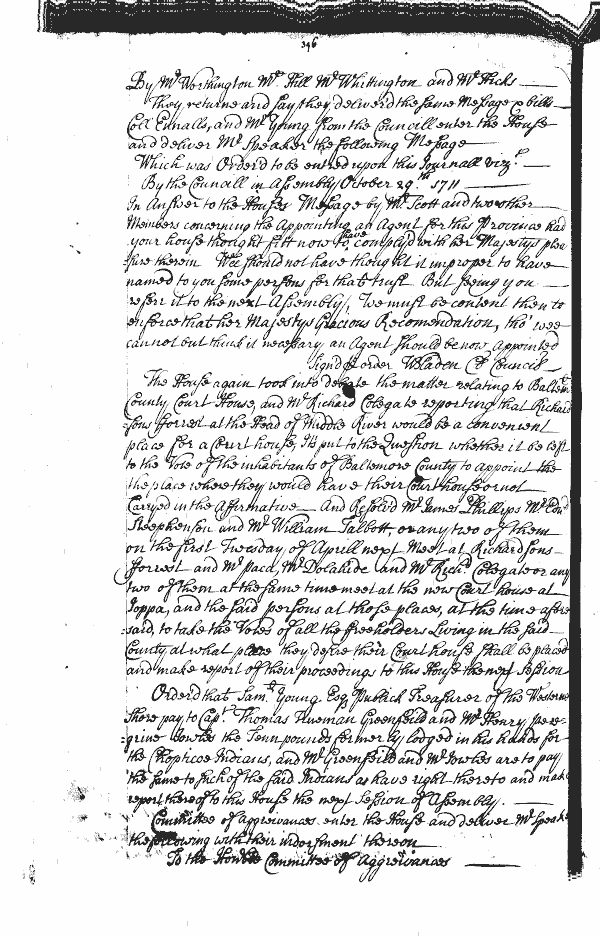 346
By Mr Worthington Mr Hill Mr Whittington and Mr Hicks
They returne and say they deliverd the same Message & bills
Coll Ennalls, and Mr Young from the Councill enter the House
and deliver Mr Speaker the following Message
Which was Orderd to be entred upon this Journall vizt
By the Councill in Assembly October 29th 1711
In Answer to the Houses Message by Mr Scott and two other
Members concerning the Appointing an Agent for this Province had
your house thought fitt now to have complyd with her Majestys plea
:sure therein Wee should not have thought it improper to have
named to you some persons for that trust But seeing you
referr it to the next Assembly, We must be content then to
enforce that her Majestys Gracious Recomendation, tho' wee
cannot but think it necessary an Agent should be now appointed
Signd p order W Bladen Cl Council
The House again took into debate the matter relating to Baltemr
County Court House, and Mr Richard Colegate reporting that Richard
:sons forrest at the Head of Middle River would be a convenient
place for a Court house, Its put to the Question whether it be left
to the Vote of the inhabitants of Baltemore County to appoint the
the place where they would have their Court house or not
Carryed in the Affirmative And Resolvd Mr James Phillips Mr
Steephenson and Mr William Talbott, or any two of them
on the first Tuesday of Aprill next Meet at Richardsons
fforrest and Mr Paca, Mr Dolahide and Mr Richd Colegate or any
two of them at the same time meet at the new Court house at
Joppa, and the said persons at those places, at the time afore
:said, to take the Votes of all the freeholders Living in the said
County at what place they desire their Court house shall be placed
and make report of their proceedings to this House the next Session
Orderd that Saml Young Esqr Publick Treasurer of the Western
Shore pay to Capt Thomas Trueman Greenfeild and Mr Henry Pere-
:grine Jowles the Tenn pounds formerly lodged in his hands for
the Chopticoe Indians, and Mr Greenfeild and Mr Jowles are to pay
the same to such of the said Indians as have right thereto and make
report thereof to this House the next Session of Assembly.
Committee of aggreivances enter the House and deliver Mr Speake
the following with their indorsment thereon
To the Honble Committee of Aggreivances